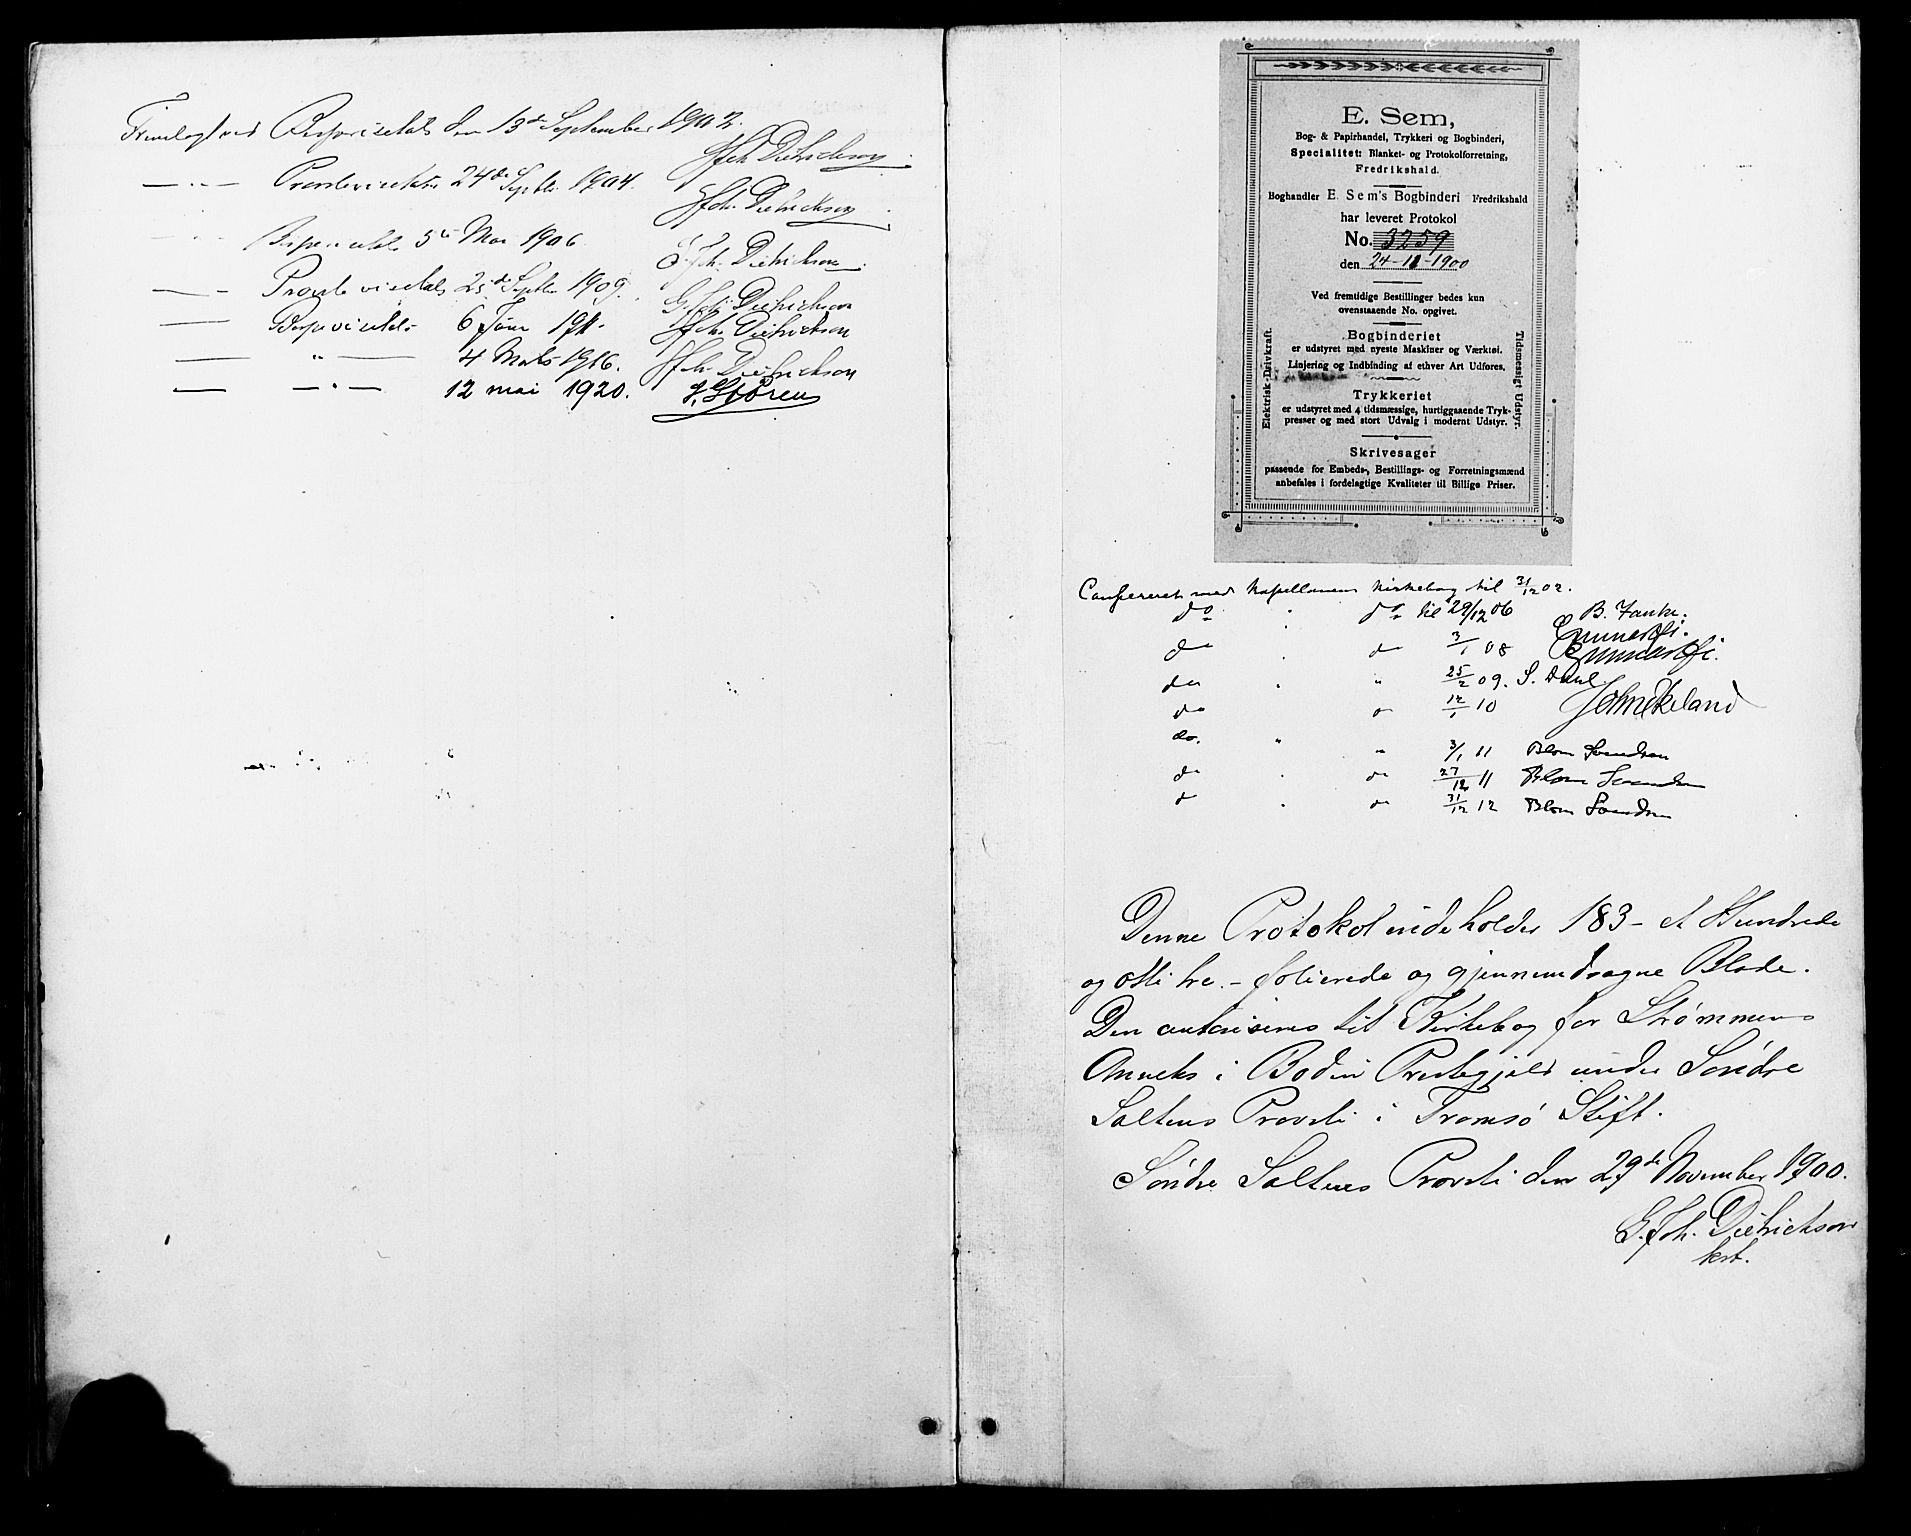 Fremlagt ved Bispevisitats den 13de September 1902.
G Joh. Dietrichson
— " — Provstevisitats 24de Septbr. 1904.
G Joh. Dietrichson
" Bispevisitats 5te Mai 1906.
G. Joh. Dietrichson
— " — Provstevisitats 25de Septbr 1909.
G Joh Dietrichson
— Bispevisitats 6 Juni 1911.
G Joh. Dietrichson
— " — 4 Marts 1916.
G Joh. Dietrichson
— — " — 12 mai 1920. J. Støren
E. Sem,
Bog- & Papirhandel, Trykkeri og Bogbinderi,
Specialitet: Blanket- og Protokolforretning,
Fredrikshald.
Boghandler E. Sem's Bogbinderi Fredrikshald
har leveret Protokol
No. 3259
den 24-11-1900
Ved fremtidige Bestillinger bedes kun
ovenstaaende No. opgivet.
Bogbinderiet
er udstyret med nyeste Maskiner og Værktøi.
Linjering og Indbinding af ethver Art Udføres.
Trykkeriet
er udstyret med 4 tidsmæssige, hurtiggaaende Tryk-
presser og med stort Udvalg i modernt Udstyr.
Skrivesager
passende for Embeds-, Bestillings- og Forretningsmænd
anbefales i fordelagtige Kvaliteter til Billige Priser.
Elektrisk-Drivkraft.
Tidsmæssigt Udstyr.
Confereret med Kapellanens Kirkebog til 31/12 02.
do " do til 29/12 06 B. Zanke.
do " do 3/1 08
do " " 25/2 09. S. Dahl
do " do 12/1 10 John Ekeland
do. " " 3/1 11 Blom Svendsen
do " do 27/12 11 Blom Svendsen
do " do 31/12 12 Blom Svendsen
Denne Protokol indeholder 183 - et Hundrede
og otti tre. - folierede og gjennemdragne Blade.
Den autoriseres til Kirkebog for Strømmens
Anneks i Bodin Prestegjeld under Søndre
Saltens Provsti i Tromsø Stift.
Søndre Saltens Provsti den 29de November 1900.
G. Joh. Dietrichson
kst.